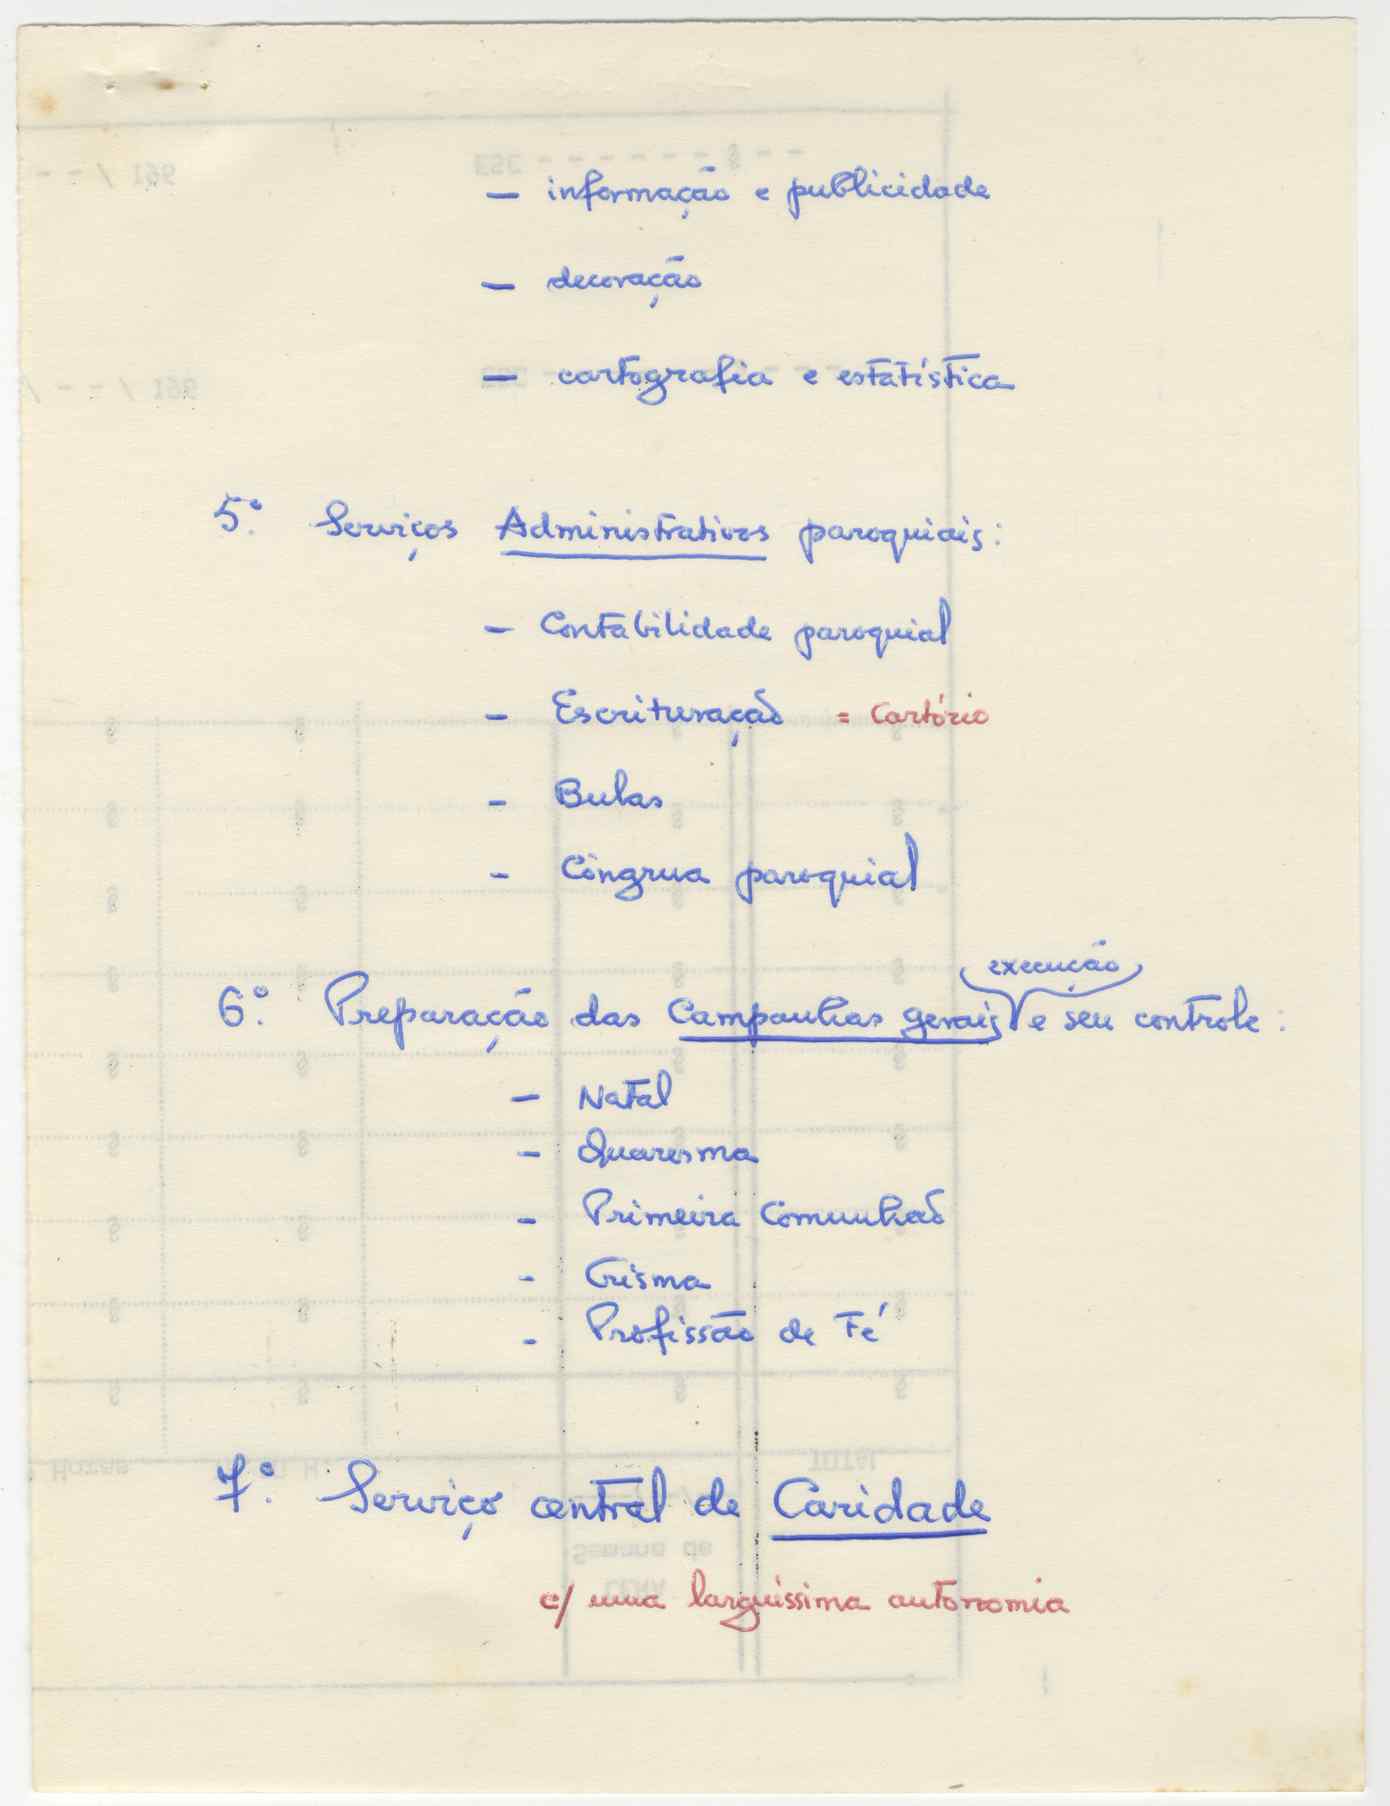 – informação e publicidade
– decoração
– cartografia e estatística
5.º Serviços Administrativos paroquiais:
– Contabilidade paroquial
– Escrituração = Cartório
– Bulas
– Côngrua paroquial
execução
6.º Preparação das Campanhas gerais e seu controle:
– Natal
– Quaresma
– Primeira Comunhão
– Crisma
– Profissão de Fé
7.º Serviço central de Caridade
c/ uma larguíssima autonomia